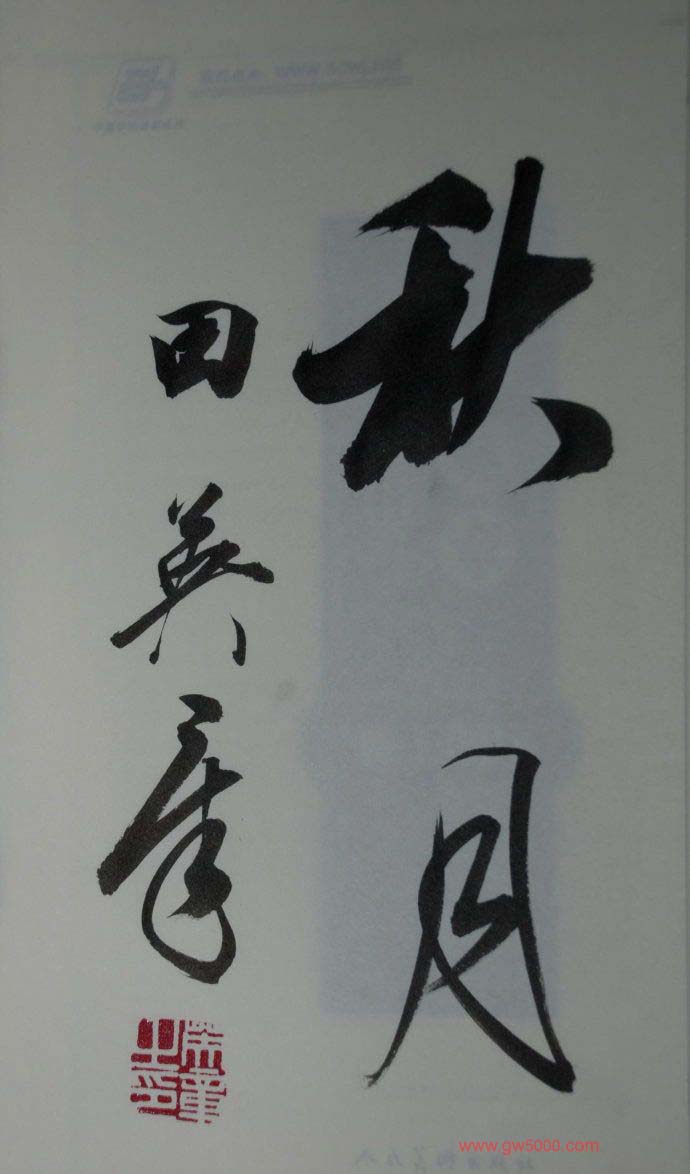 秋月
田英章
www.gw5000.com